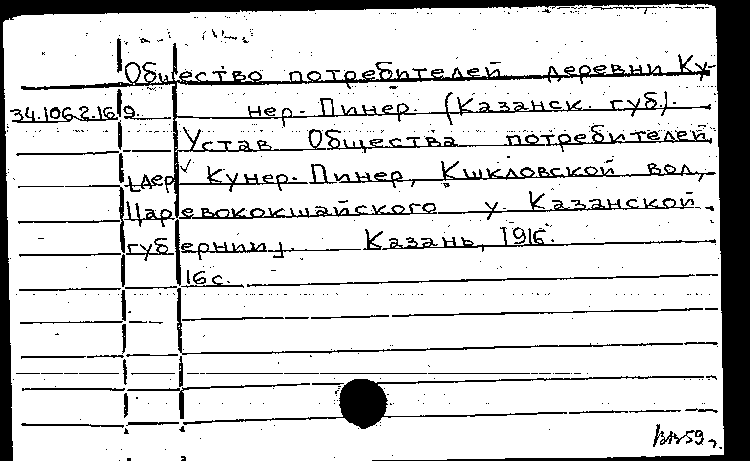 Общество потребителей деревни Ку-
34.106.2.169. нер-Пинер. (Казанск. губ.).
Устав Общества потребителей
[дер Кунер-Пинер, Кшкловской вол.,
Царевококшайского у Казанской
губернии]. Казань, 1916.
16 с.